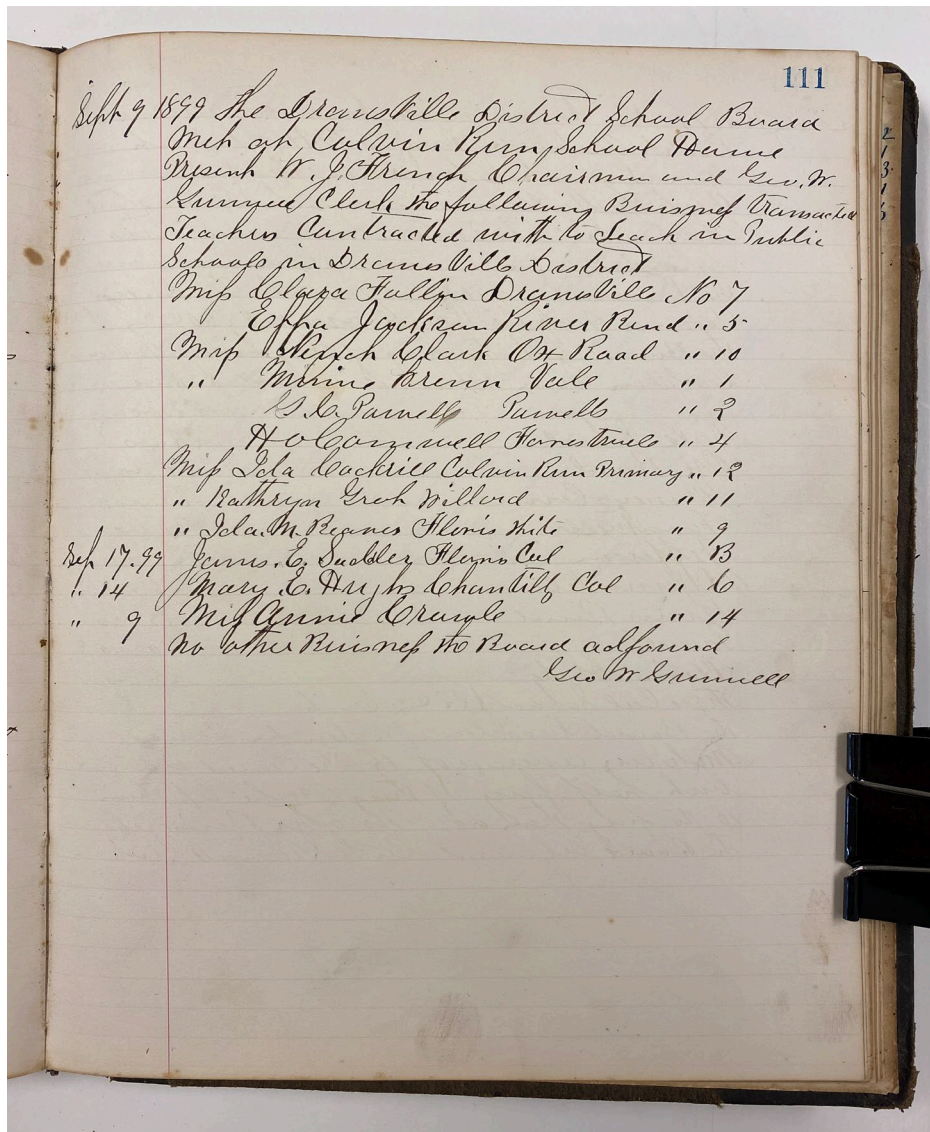 111
Sept 9 1899 The Dranesville District School Board
Met at Colvin Run School House
Present W. J. French Chairman and Geo. W.
Gunnell Clerk the following Buisness Transacted
Teachers Contracted with to Teach in Public
Schools in Dranesville District
Miss Clara Follin Dranesville No 7
Jackson River Bend " 5
Miss Clark Ox Road " 10
" Vale " 1
Powells " 2
Forestville " 4
Miss Ida Cockrill Colvin Run Primary " 12
" Kathryn Willard " 11
" Ida. M. Reaves Floris White " 9
Sep 17. 99 James. E. Floris Col " B
" 14 Mary. E. Chantilly Col " 6
" 9 Miss Annie " 14
No other Buisness the Board adjourned
Geo W Gunnell
2
1
3
1
5